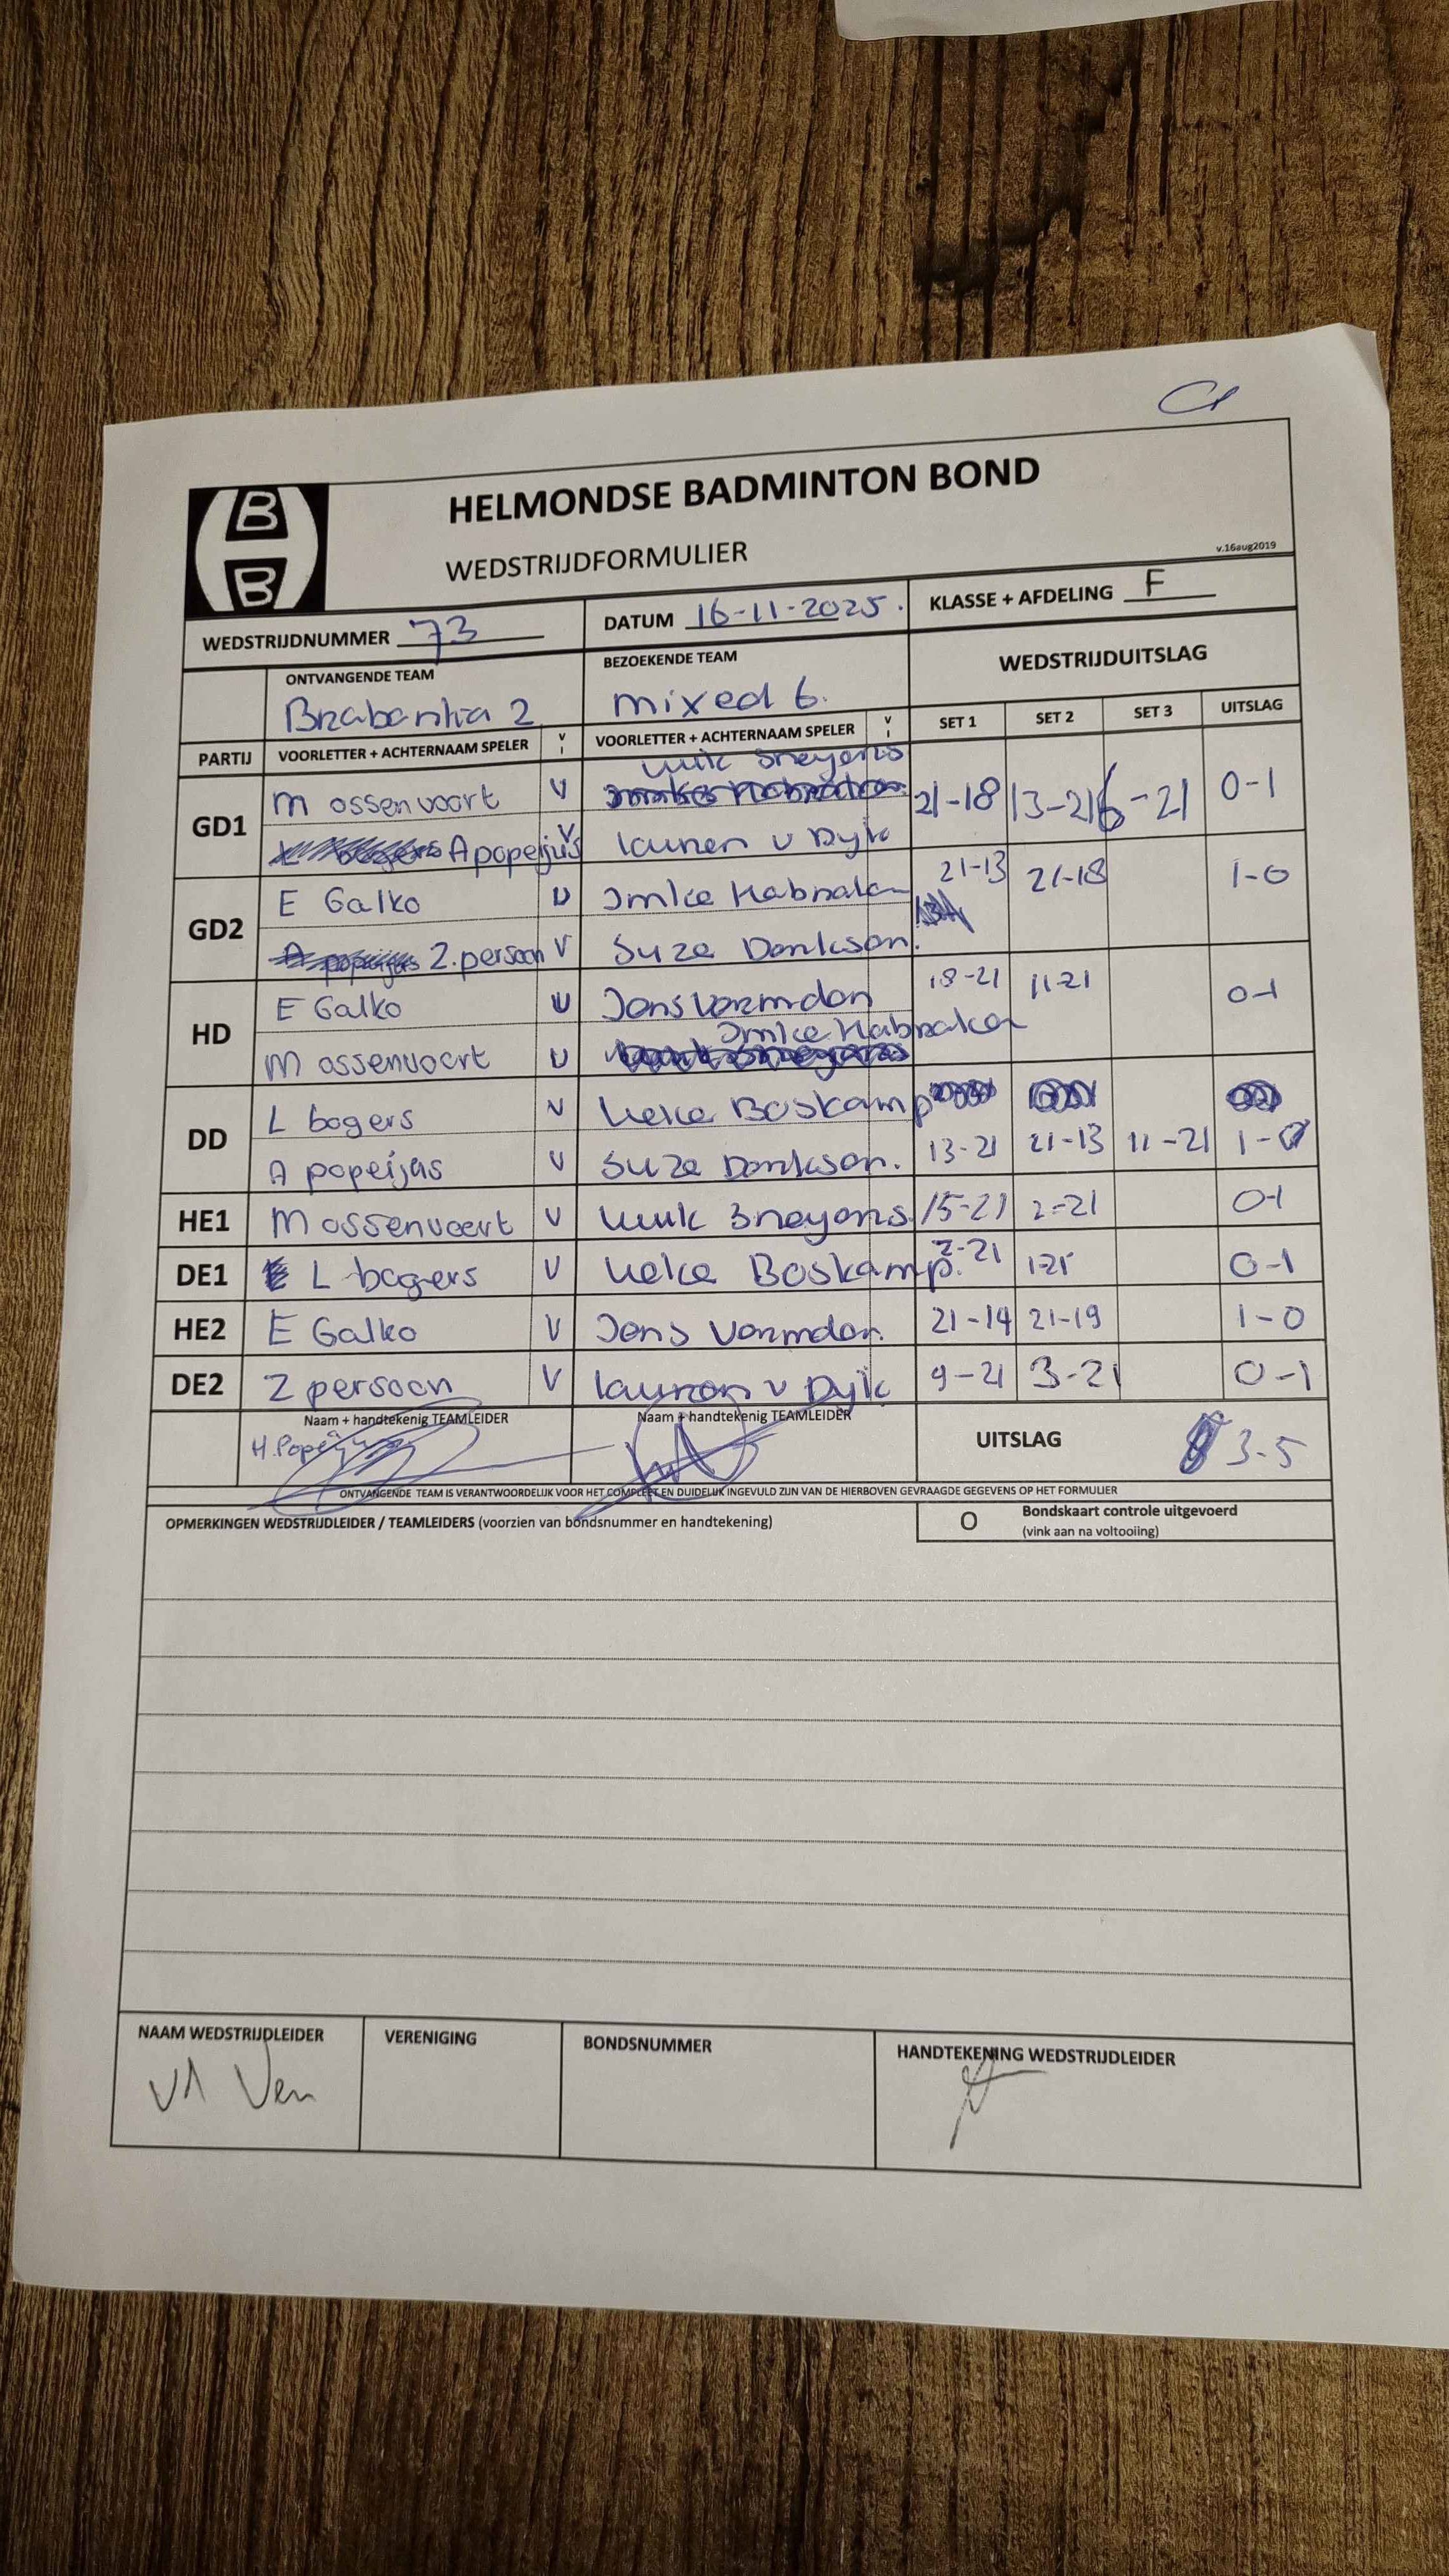 C1
HELMONDSE BADMINTON BOND
WEDSTRIJDFORMULIER
v.16aug2019
WEDSTRIJDNUMMER 73 DATUM 16-11-2025. KLASSE + AFDELING F
ONTVANGENDE TEAM BEZOEKENDE TEAM WEDSTRIJDUITSLAG
Brabantia 2 mixed 6.
PARTIJ VOORLETTER + ACHTERNAAM SPELER V I VOORLETTER + ACHTERNAAM SPELER V I SET 1 SET 2 SET 3 UITSLAG
Luuk Sneyers
GD1 M ossenvoort V 21-18 13-21 6-21 0-1
A popeijus V Lauren v Dyk
GD2 E Galko V Imke Habraken 21-13 21-18 1-0
Z. persoon V Suze Donkson.
HD E Galko V Jens Vermdon 18-21 11-21 0-1
Imke Habraken
M ossenvoort V
DD L bogers V Lieke Boskamp
A popeijas V Suze Donkson. 13-21 21-13 11-21 1-0
HE1 M ossenvoort V Luuk Sneyers 15-21 2-21 0-1
DE1 L bogers V Lieke Boskamp. 2-21 1-21 0-1
HE2 E Galko V Jens Vermdon. 21-14 21-19 1-0
DE2 Z persoon V Lauren v Dyk 9-21 3-21 0-1
Naam + handtekenig TEAMLEIDER Naam + handtekenig TEAMLEIDER
H. Popeijus UITSLAG 3-5
ONTVANGENDE TEAM IS VERANTWOORDELIJK VOOR HET COMPLEET EN DUIDELIJK INGEVULD ZIJN VAN DE HIERBOVEN GEVRAAGDE GEGEVENS OP HET FORMULIER
OPMERKINGEN WEDSTRIJDLEIDER / TEAMLEIDERS (voorzien van bondsnummer en handtekening) O Bondskaart controle uitgevoerd
(vink aan na voltooiing)
NAAM WEDSTRIJDLEIDER VERENIGING BONDSNUMMER HANDTEKENING WEDSTRIJDLEIDER
vd Ven